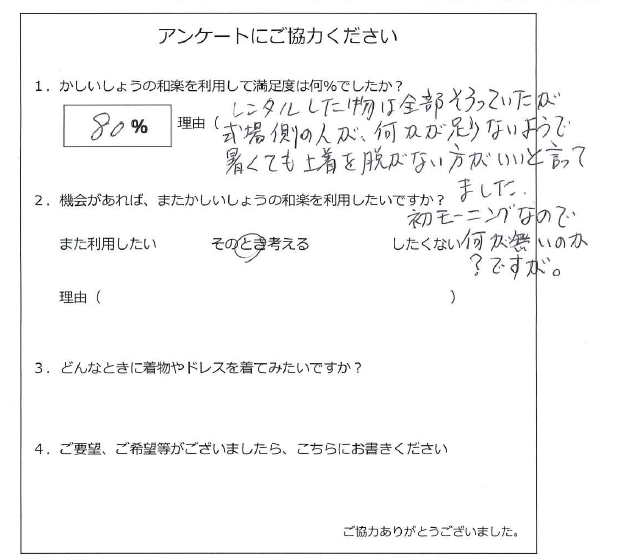 アンケートにご協力ください
1．かしいしょうの和楽を利用して満足度は何%でしたか？
80%
理由（レンタルした物は全部そろっていたが
式場側の人が、何かが足りないようで
暑くても上着を脱がない方がいいと言って
ました.
初モーニングなので
何が無いのか
？ですが。
2．機会があれば、またかしいしょうの和楽を利用したいですか？
また利用したい　そのとき考える　したくない
理由（　）
3．どんなときに着物やドレスを着てみたいですか？
4．ご要望、ご希望等がございましたら、こちらにお書きください
ご協力ありがとうございました。